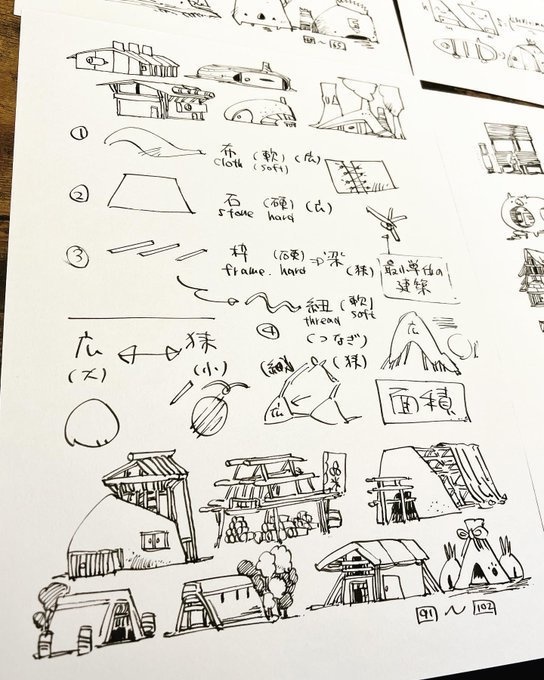 ① 布 (軟) (広)
cloth (soft)
② 石 (硬) (広)
stone hard
③ 枠 (硬) ⇒ 梁 (狭)
frame. hard
最小単位の
連線
紐 (軟)
thread soft
④ (つなぎ)
(細) (狭)
広 ↔ 狭
(大) (小)
広
広
面積
91 ~ 102